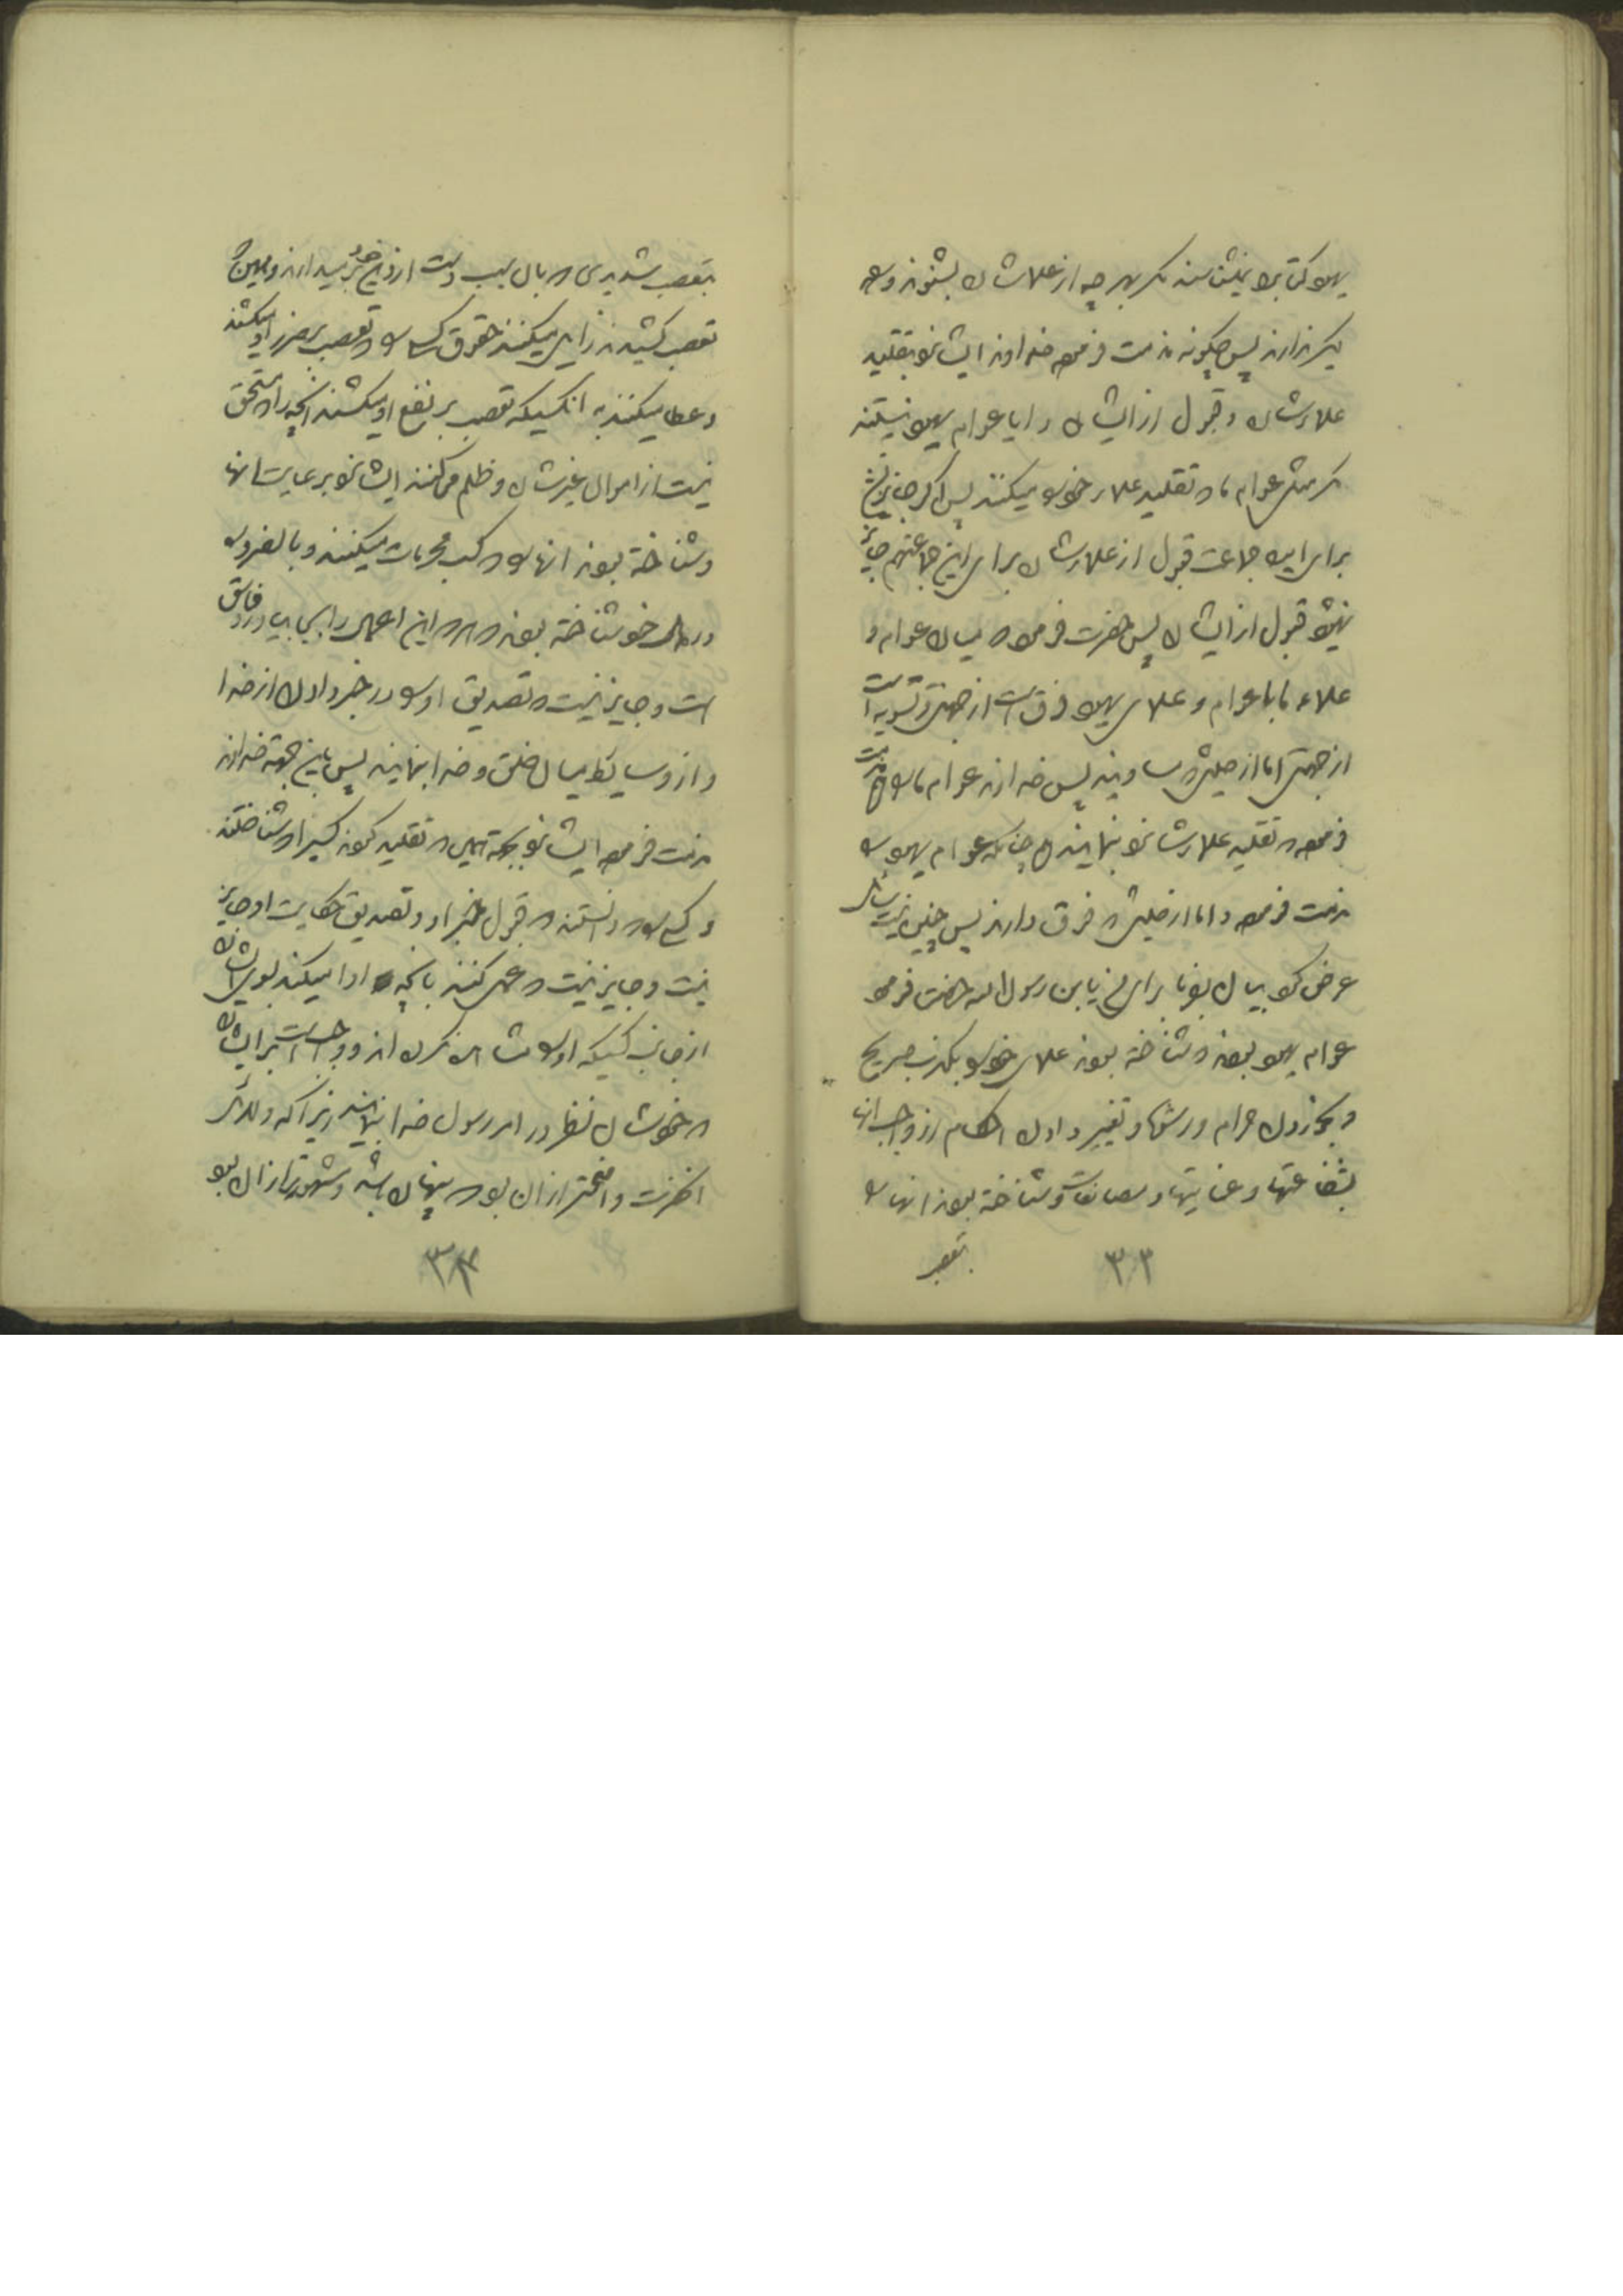 یهود کتابرا نمیشناسند مگر بهرچه از علماشان بشنوند و راه
دیگر ندارند پس چگونه مذمت فرموده خداوند ایشانرا بتقلید
علمارشان و قبول از ایشان و ایا عوام یهود نیستند
مگر مثل عوام ما که تقلید علمار خود را میکنند پس اگر جایز نیست
برای ان جماعت قبول از علمارشان برای این جماعت هم جایز
نمیشود قبول از ایشان پس حضرت فرمود که میان عوام و
علماء ما با عوام و علمای یهود فرق است از جهتی و تسویه است
از جهتی اما از حیثی که مساویند پس خداوند عوام ما را مذمت
فرموده که تقلید علمارشانرا بنمایند چنانکه عوام یهود را
مذمت فرموده و اما از حیثی که فرق دارند پس چنین نیست سائل
عرض کرد بیان بفرما برای من یابن رسول الله حضرت فرمود
عوام یهود بودند که شناخته بودند علمای خود را بکذب صریح
و بخوردن حرام و رشوه و تغییر دادن احکام از واجب انها
بشفاعتها و عنایتها و مصانعات و شناخته بودند انها را
بتعصب
۳۳
بتعصب شدیدی که بان سبب دست از دین خود بر میدارند و همین که
تعصب کشیدند زایل میکنند حقوق کسی را که تعصب بضرر او میکشند
و عطا میکنند به انکسیکه تعصب بر نفع او میکشند انچه را که مستحق
نیست از اموال غیرشان و ظلم میکنند ایشانرا برعایت انها
و شناخته بودند انها را که کسب محرمات میکنند و بالضروره
در دل خود شناخته بودند که هر که این اعمال را بجای اورد فاسق
است و جایز نیست که تصدیق او را در خبر دادن از خدا
و از وسایط میان خلق و خدا بنمایند پس باین جهت خداوند
مذمت فرموده ایشانرا بجهت همین که تقلید کردند کسیرا که شناختند
و کسی را که دانستند که قبول خبر او و تصدیق حکایت او جایز
نیست و جایز نیست که عمل کنند بانچه ادا میکند بسوی ایشان
از جانب کسیکه او را مشاهده نکرده اند و واجب است بر ایشان
که خودشان نظر در امر رسول خدا بنمایند زیرا که دلائل
انحضرت واضحتر از ان بود که پنهان باشد و مشهورتر از ان بود
۳۴